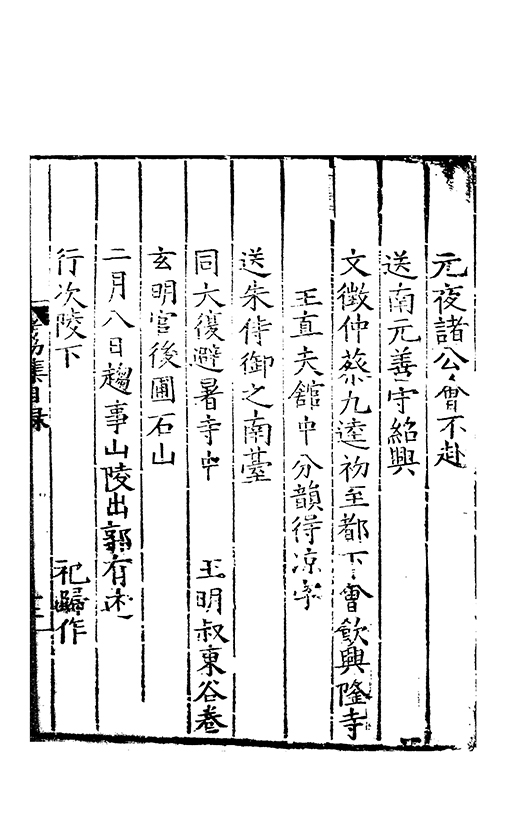 元夜諸公會不赴
送南元善守紹興
文徵仲蔡九逵初至都下會飲興隆寺
王直夫舘中分韻得凉字
送朱侍御之南臺
同大復避暑寺中 王明叔東谷卷
玄明宮後圃石山
二月八日趨事山陵出郭有述
行次陵下 祀歸作
集目録